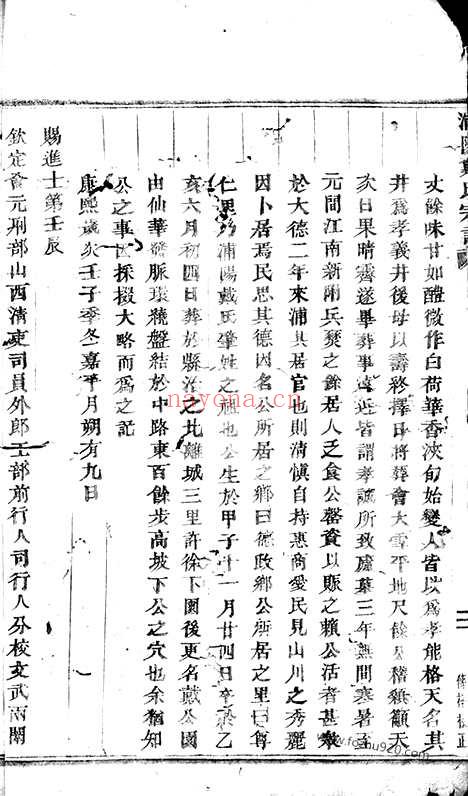 浦陽戴氏宗譜
丈餘味甘如醴微作白荷華香浹旬始變人皆以為孝能格天名其
井為孝義井後母以壽終擇日將葬會大雪平地尺餘公稽顙籲天
次日果晴霽遂畢葬事遠近皆謂孝誠所致廬墓三年無間寒暑至
元間江南新附兵燹之餘居人乏食公罄資以賑之賴公活者甚衆
於大德二年來浦其居官也則清慎自持惠商愛民見山川之秀麗
因卜居焉民思其德因名公所居之鄉曰德政鄉公所居之里曰尊
仁里乃浦陽戴氏肇姓之祖也公生於甲子十一月廿四日卒於乙
亥六月初四日葬於縣治之北離城三里許徐下園後更名戴公園
由仙華發脈環繞盤結於中路東百餘步高坡下公之穴也余猶知
公之事因採掇大略而為之記
康熙歲次壬子季冬嘉平月朔有九日
賜進士第壬辰
欽定會元刑部山西清吏司員外郎工部前行人司行人分校文武兩闈
nayona.cn